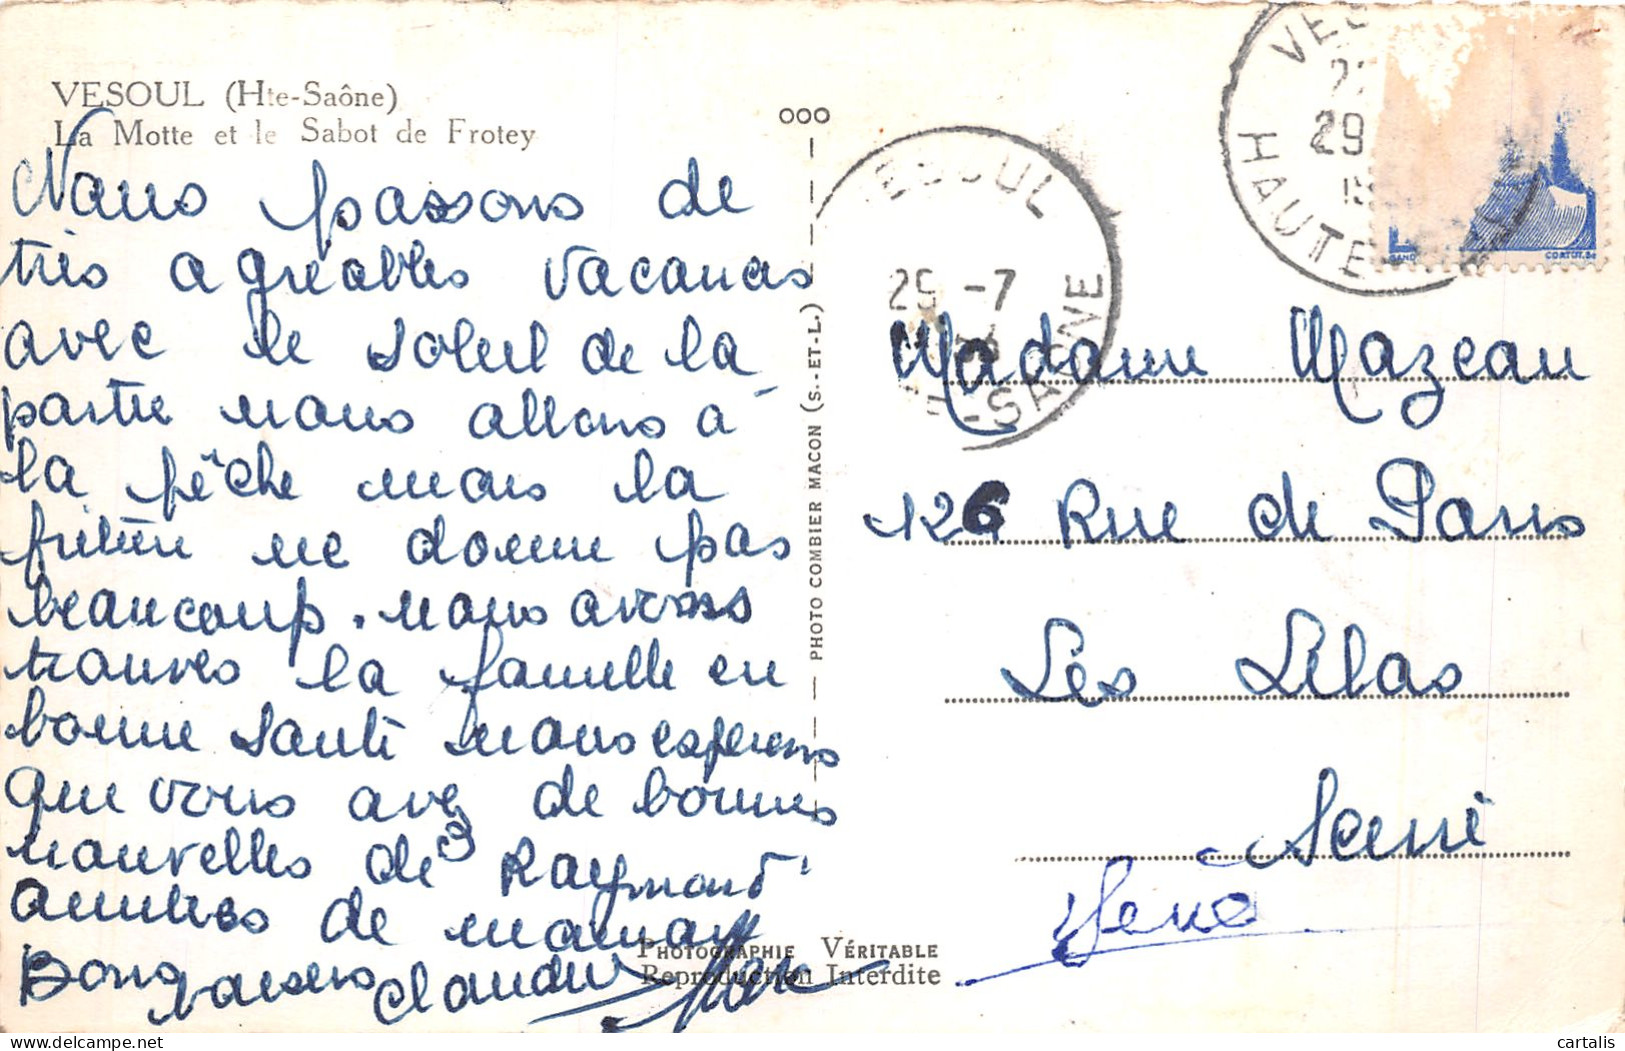 VESOUL (Hte-Saône)
La Motte et le Sabot de Frotey
Nous passons de
très agréables vacances
avec le soleil de la
partie nous allons à
la pêche mais la
friture ne donne pas
beaucoup. nous avons
trouvés la famille en
bonne santé nous esperons
que vous avez de bonnes
nouvelles de Raymond
Amitiés de maman
Bons baisers Claudie
PHOTO COMBIER MACON (S.-ET-L.)
PHOTOGRAPHIE VÉRITABLE
Reproduction Interdite
VESOUL
25 -7
HTE-SAONE
VES
29
HAUTE
GAND
CORTOT.Sc
Madame Mazeau
126 Rue de Paris
Les Lilas
Seine
Seine
cartalis